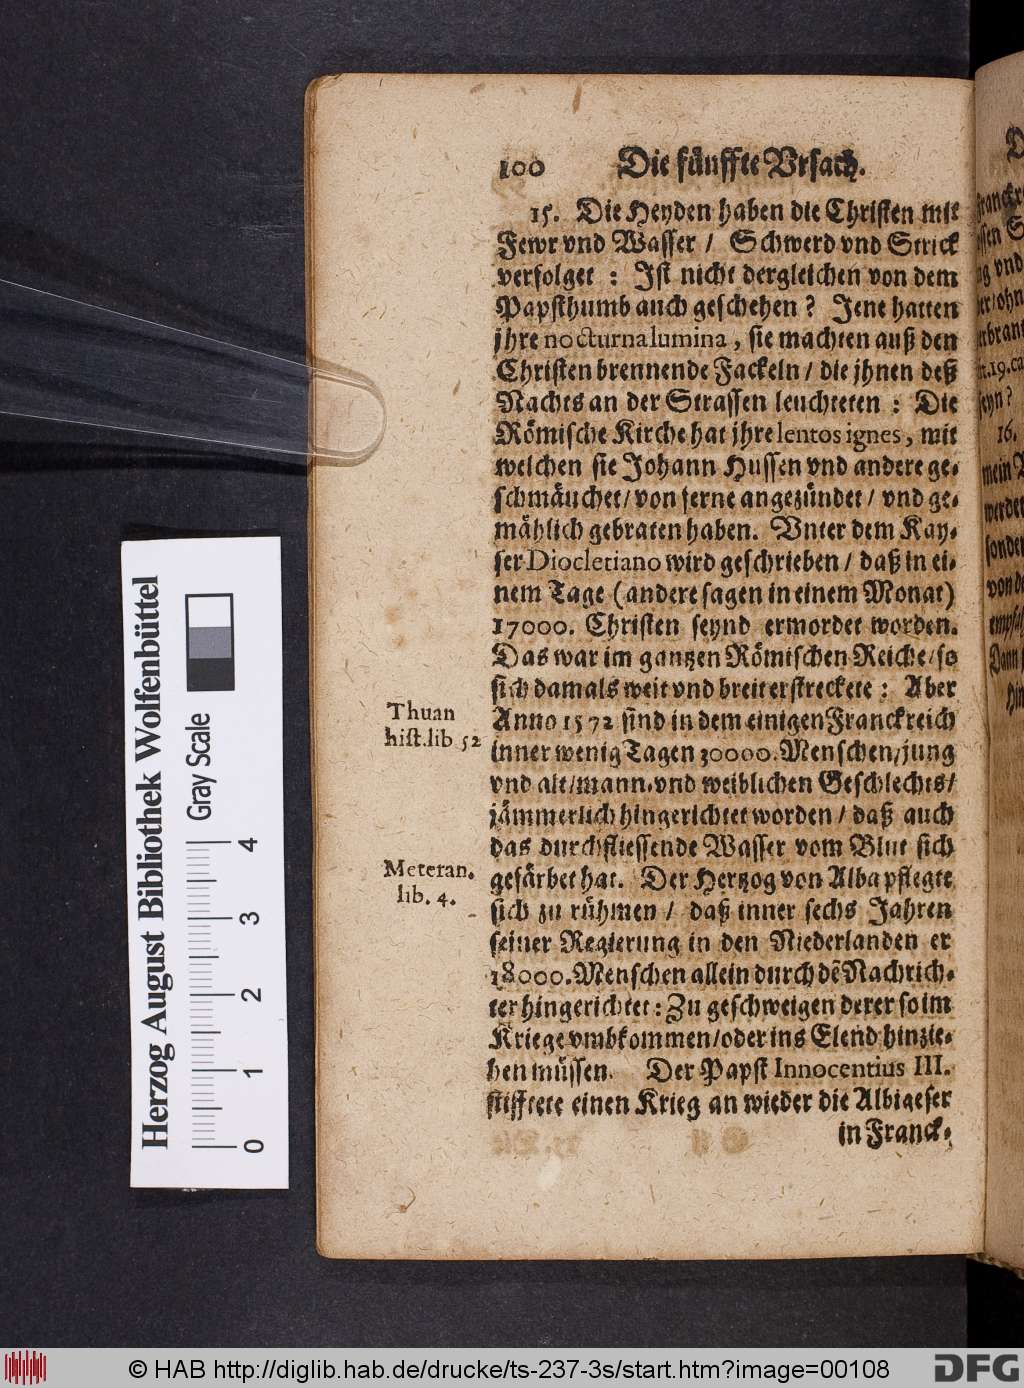 100 Die fünffte Vrsach.
15. Die Heyden haben die Christen mit
Fewr vnd Wasser / Schwerd vnd Strick
verfolget : Ist nicht dergleichen von dem
Papsthumb auch geschehen ? Jene hatten
jhre nocturna lumina, sie machten auß den
Christen brennende Fackeln / die jhnen deß
Nachts an der Strassen leuchteten : Die
Römische Kirche hat jhre lentos ignes, mit
welchen sie Johann Hussen vnd andere ge-
schmäuchet / von ferne angezündet / vnd ge-
mählich gebraten haben. Vnter dem Kay-
ser Diocletiano wird geschrieben / daß in ei-
nem Tage (andere sagen in einem Monat)
17000. Christen seynd ermordet worden.
Das war im gantzen Römischen Reiche / so
sich damals weit vnd breit erstreckete : Aber
Thuan
hist. lib 52
Anno 1572 sind in dem einigen Franckreich
inner wenig Tagen 30000. Menschen / jung
vnd alt / mann- vnd weiblichen Geschlechts /
jämmerlich hingerichtet worden / daß auch
das durchfliessende Wasser vom Blut sich
Meteran.
lib. 4.
gefärbet hat. Der Hertzog von Alba pflegte
sich zu rühmen / daß inner sechs Jahren
seiner Regierung in den Niederlanden er
18000. Menschen allein durch dẽ Nachrich-
ter hingerichtet : Zu geschweigen derer so im
Kriege vmbkommen / oder ins Elend hinzie-
hen müssen. Der Papst Innocentius III.
stifftete einen Krieg an wieder die Albigeser
in Franck-
16.
mein
werden
sonder
Dann
Herzog August Bibliothek Wolfenbüttel
Gray Scale
0 1 2 3 4
© HAB http://diglib.hab.de/drucke/ts-237-3s/start.htm?image=00108
DFG